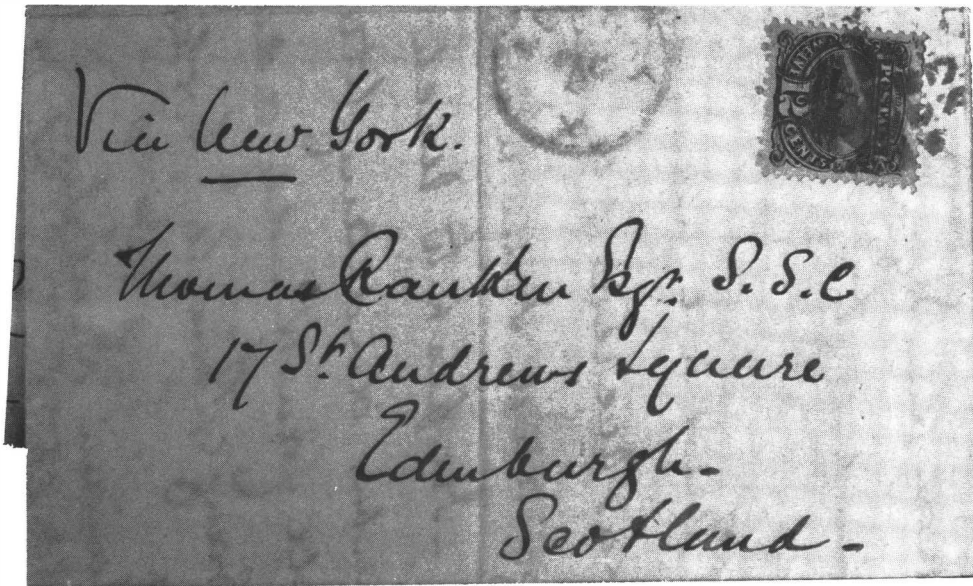 Via New York.
Thomas Ranken Esqr. S.S.C
17 St. Andrews Square
Edinburgh-
Scotland-
CENTS